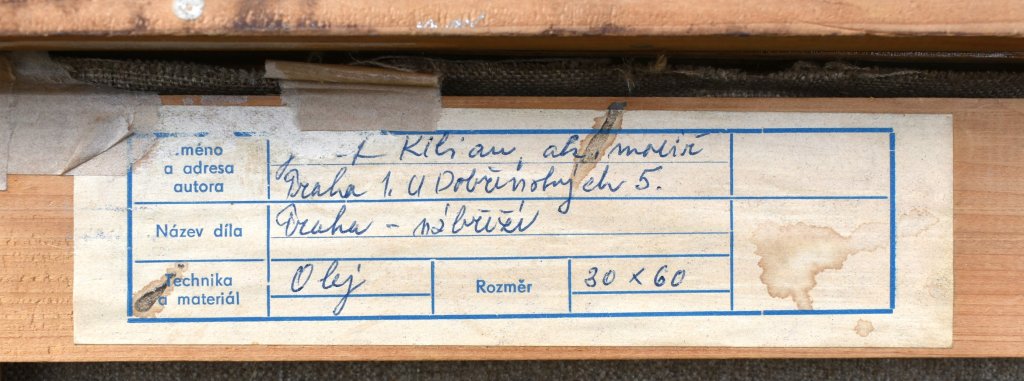 .méno
a adresa
autora
Kilian, ak. malíř
Praha 1. U Dobřenských 5.
Název díla
Praha - nábřeží
Technika
a materiál
Olej
Rozměr
30 x 60